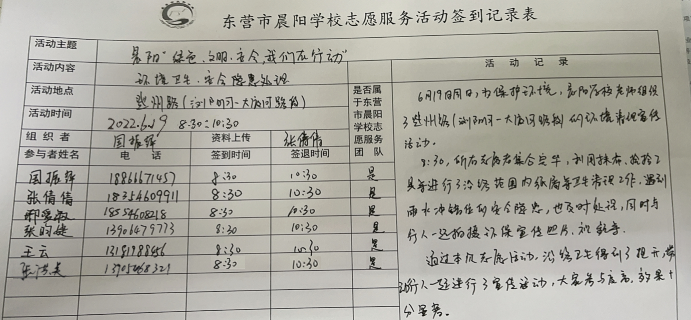 东营市晨阳学校志愿服务活动签到记录表
活动主题
晨阳“绿色、文明、安全,我们在行动”
活动内容
环境卫生、安全隐患处理
活动地点
登州路(浏阳河—大渡河路段)
活动时间
2022.6.19 8:30-10:30
是否属于东营市晨阳学校志愿服务团队
活动记录
组织者
国振锋
资料上传
张倩倩
参与者姓名
电话
签到时间
签退时间
国振锋 18866671457 8:30 10:30 是
张倩倩 18354609911 8:30 10:30 是
18554608218 8:30 10:30 是
张昀健 13901479773 8:30 10:30 是
王云 13181988456 8:30 10:30 是
张洪美 13905468321 8:30 10:30 是
6月19日周日,为保护环境,晨阳学校老师组织
了登州路(浏阳河—大渡河路段)的环境清理宣传
活动。
8:30,所有志愿者集合完毕,利用抹布、
工具等进行了沿线范围内纸屑等卫生清理工作,遇到
雨水冲刷 安全隐患,也及时处理,同时与
行人一起拍摄环保宣传照片、
通过本次志愿活动,沿线卫生得到了提升,带
动行人一起进行了宣传活动,大家参与度高,效果十
分显著。